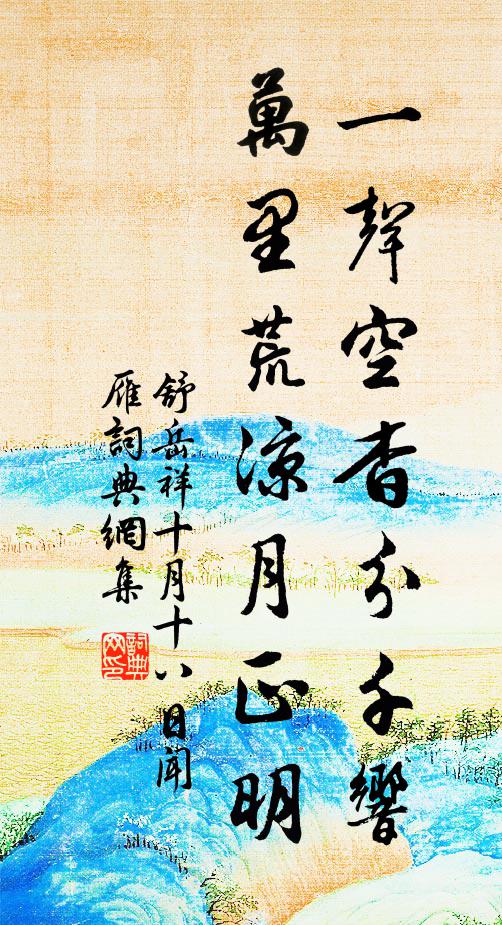 一聲空杳分千響
萬里荒涼月正明
舒岳祥十月十八日聞
雁詞典網集
詞典
网印